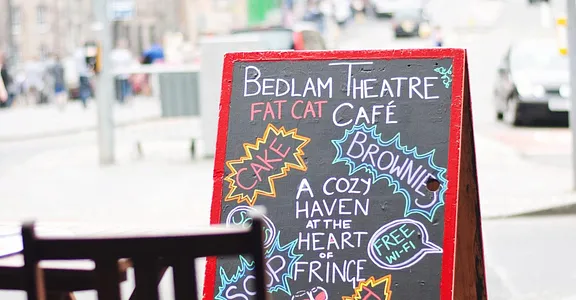 BEDLAM THEATRE
FAT CAT CAFÉ
CAKE
BROWNIES
A COZY
HAVEN
AT THE
HEART
OF
FRINGE
FREE
WI-FI